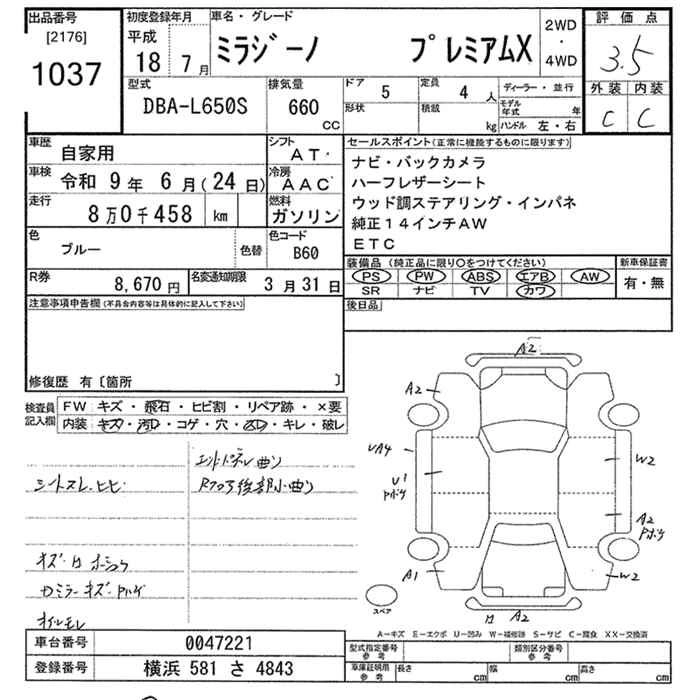 出品番号
[2176]
1037
初度登録年月
平成
18 7月
車名・グレード
ミラジーノ プレミアムX
2WD
・
4WD
評価点
3.5
外装 内装
C C
型式
DBA-L650S
排気量
660
CC
ドア
5
形状
定員
4 人
積載
kg
ディーラー・並行
モデル年式 年
ハンドル 左・右
車歴
自家用
シフト
AT・
車検
令和 9年 6月(24日)
冷房
AAC
走行
8万0千458 km
燃料
ガソリン
色
ブルー
色替
色コード
B60
R券
8,670円
名変通知期限
3月31日
セールスポイント(正常に機能するものに限ります)
ナビ・バックカメラ
ハーフレザーシート
ウッド調ステアリング・インパネ
純正14インチAW
ETC
装備品(純正品に限り○をつけてください)
PS PW ABS エアB AW
SR ナビ TV カワ
新車保証書
有・無
後日品
注意事項申告欄(不具合内容等は具体的に記入して下さい)
修復歴 有〔箇所 〕
検査員記入欄
FW キズ・飛石・ヒビ割・リペア跡・×要
内装 キズ・汚レ・コゲ・穴・スレ・キレ・破レ
エンドパネル曲り
シートスレ、ヒビ
Rフロア後部小曲り
キズ・
カミラーキズ・Pハゲ
オイルモレ
A2
A2
UA4
U1
Pボケ
W2
A2
Pボケ
A1
W2
A2
スペア
A-キズ E-エクボ U-凹み W-補修跡 S-サビ C-腐食 XX-交換済
車台番号
0047221
登録番号
横浜 581 さ 4843
型式指定番号
参考
類別区分番号
参考
車庫証明用
参考
長さ cm
幅 cm
高さ cm